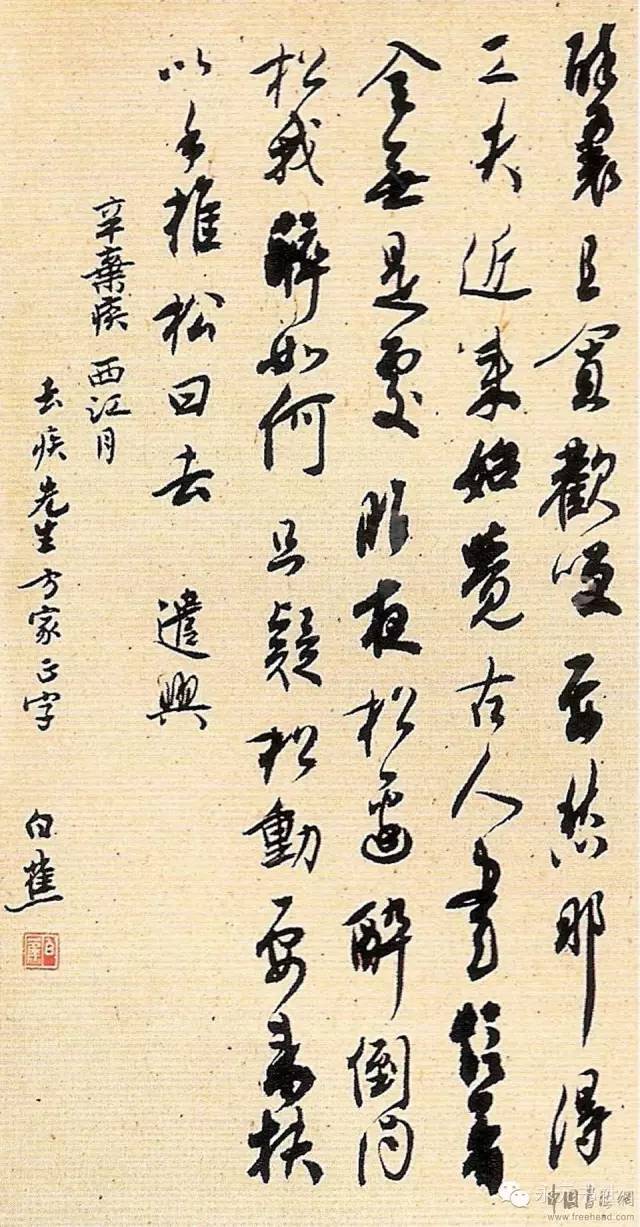 醉裏且貪歡咲要愁那得
工夫近來始覺古人書信著
全無是處昨夜松邊醉倒問
松我醉如何只疑松動要來扶
以手推松曰去 遣興
辛棄疾 西江月
去疾先生方家正字 白蕉
白蕉
中国书法網
www.freehead.com